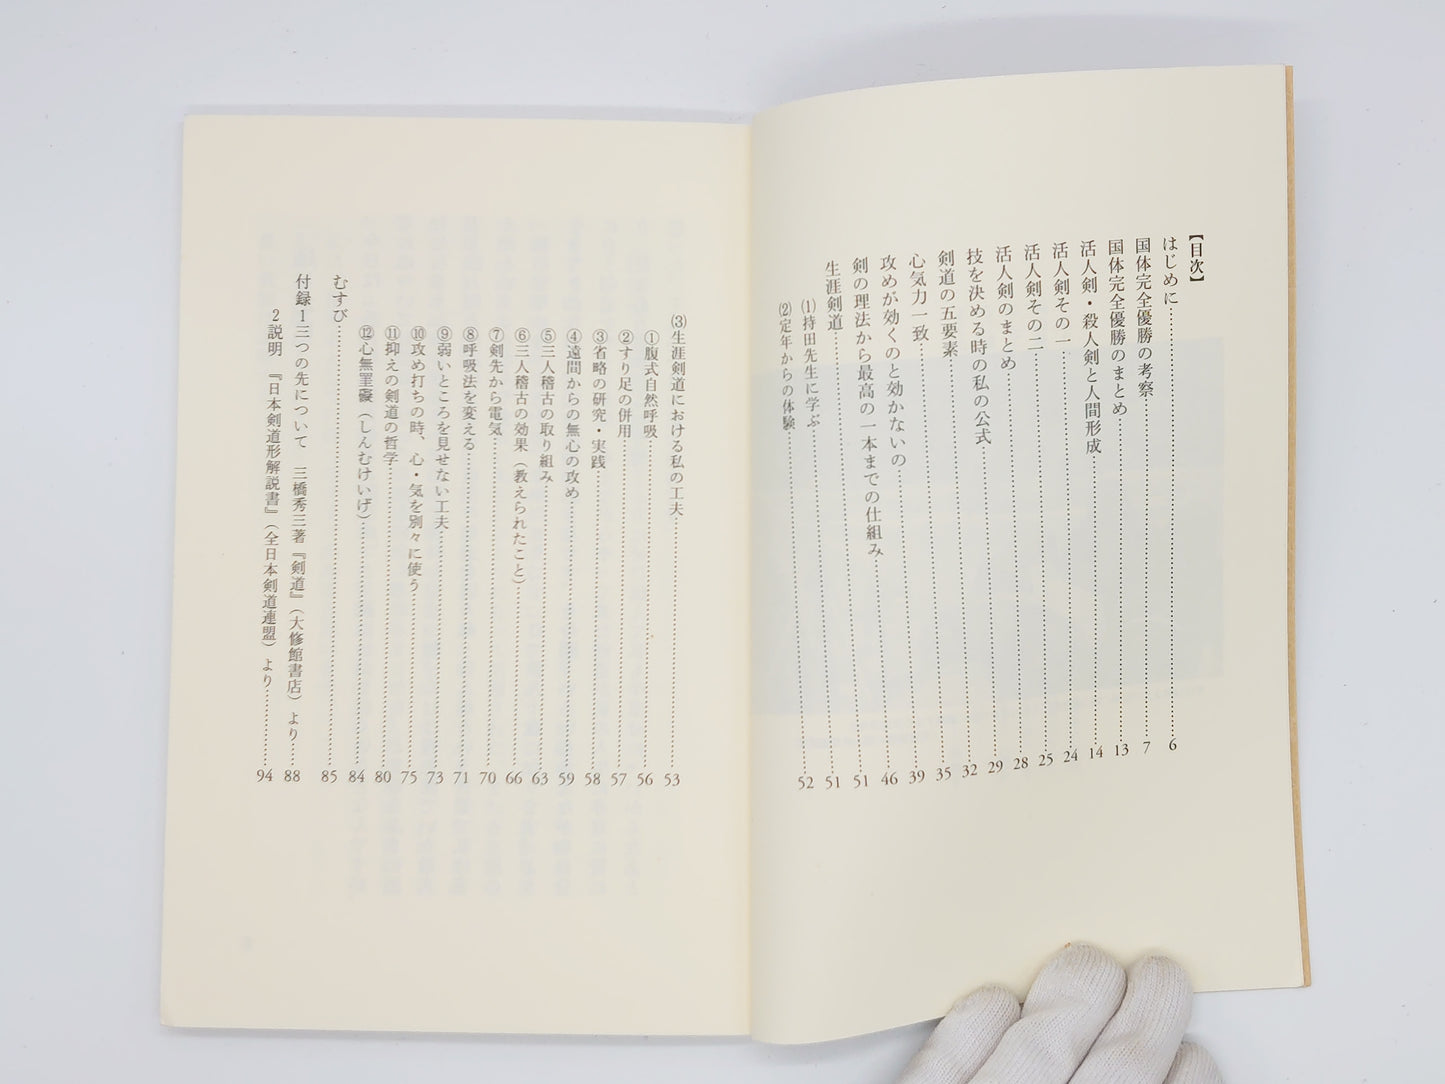 【目次】
はじめに……6
国体完全優勝の考察……7
国体完全優勝のまとめ……13
活人剣・殺人剣と人間形成……14
活人剣その一……24
活人剣その二……25
活人剣のまとめ……28
技を決める時の私の公式……29
剣道の五要素……32
心気力一致……35
攻めが効くのと効かないの……39
剣の理法から最高の一本までの仕組み……46
生涯剣道……51
⑴持田先生に学ぶ……51
⑵定年からの体験……52
⑶生涯剣道における私の工夫……53
①腹式自然呼吸……56
②すり足の併用……57
③省略の研究・実践……58
④遠間からの無心の攻め……59
⑤三人稽古の取り組み……63
⑥三人稽古の効果（教えられたこと）……66
⑦剣先から電気……70
⑧呼吸法を変える……71
⑨弱いところを見せない工夫……73
⑩攻め打ちの時、心・気を別々に使う……75
⑪抑えの剣道の哲学……80
⑫心無罣礙（しんむけいげ）……84
むすび……85
付録1三つの先について　三橋秀三著『剣道』（大修館書店）より……88
2説明　『日本剣道形解説書』（全日本剣道連盟）より……94